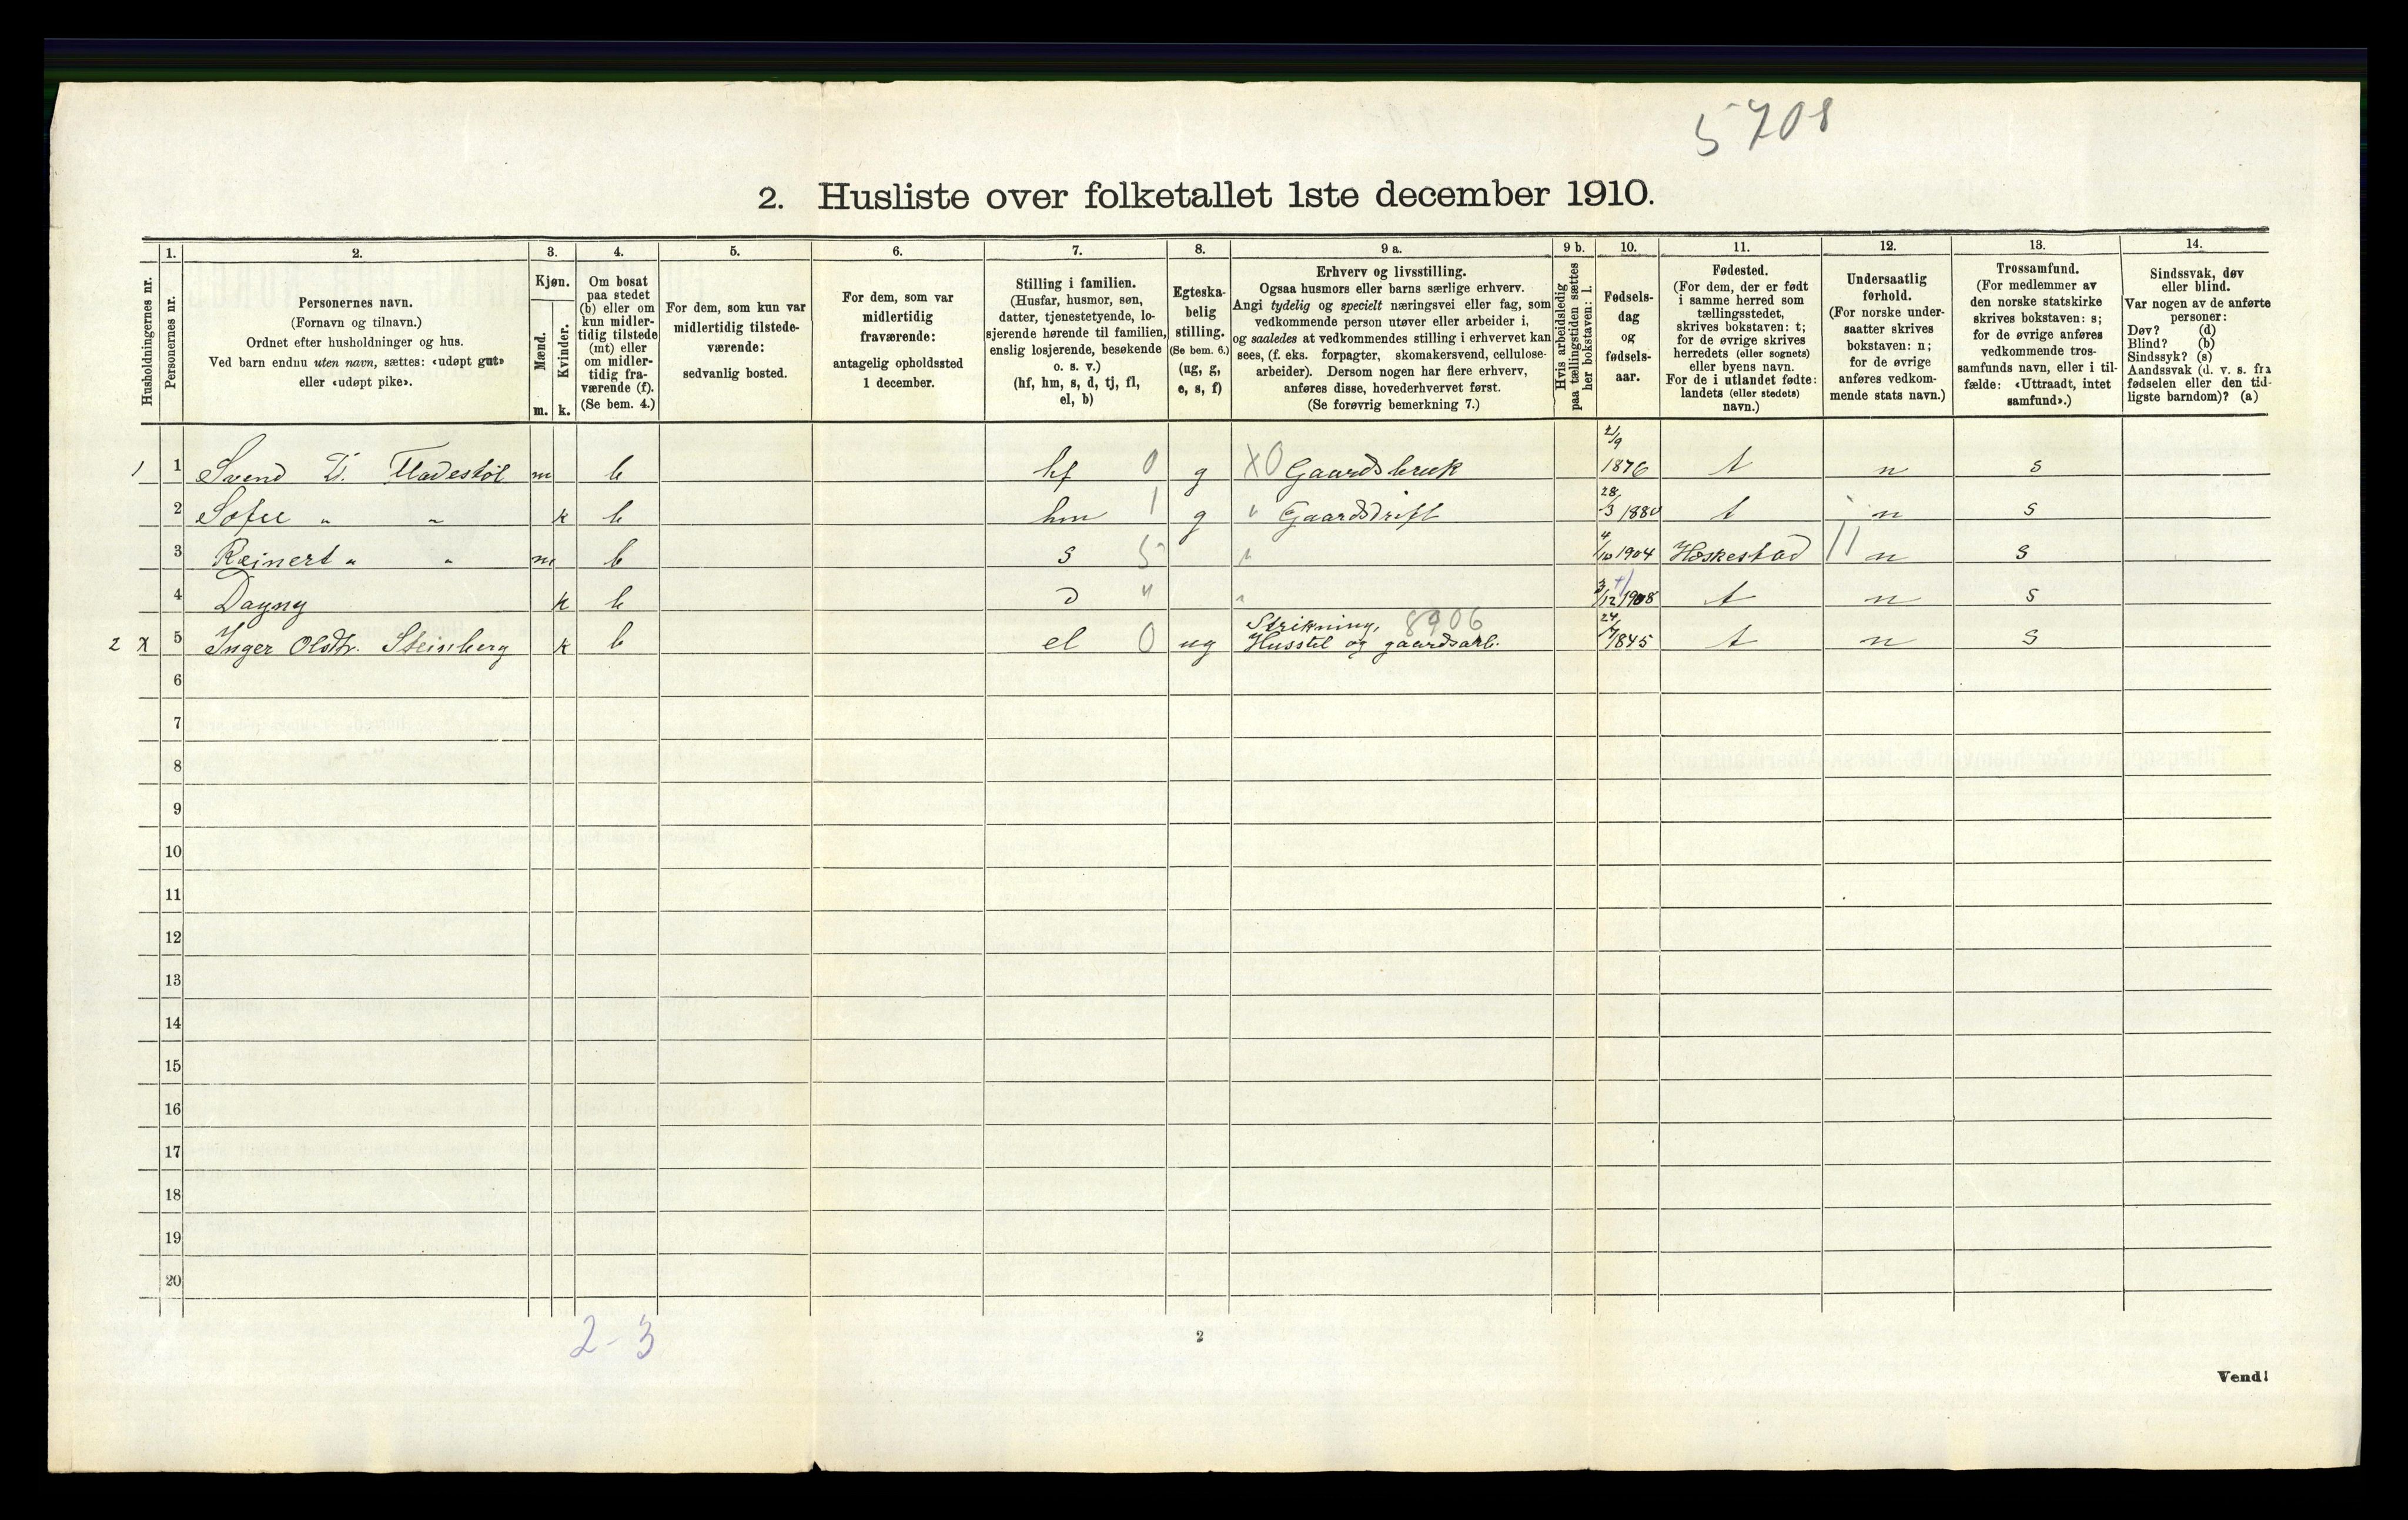 5708
2. Husliste over folketallet 1ste december 1910.
Husholdningernes nr.
1.
Personernes nr.
2.
Personernes navn.
(Fornavn og tilnavn.)
Ordnet efter husholdninger og hus.
Ved barn endnu uten navn, sættes: «udøpt gut»
eller «udøpt pike».
3.
Kjøn.
Mænd.
Kvinder.
m. k.
4.
Om bosat
paa stedet
(b) eller om
kun midler-
tidig tilstede
(mt) eller
om midler-
tidig fra-
værende (f).
(Se bem. 4.)
5.
For dem, som kun var
midlertidig tilstede-
værende:
sedvanlig bosted.
6.
For dem, som var
midlertidig
fraværende:
antagelig opholdssted
1 december.
7.
Stilling i familien.
(Husfar, husmor, søn,
datter, tjenestetyende, lo-
sjerende hørende til familien,
enslig losjerende, besøkende
o. s. v.)
(hf, hm, s, d, tj, fl,
el, b)
8.
Egteska-
belig
stilling.
(Se bem. 6.)
(ug, g,
e, s, f)
9 a.
Erhverv og livsstilling.
Ogsaa husmors eller barns særlige erhverv.
Angi tydelig og specielt næringsvei eller fag, som
vedkommende person utøver eller arbeider i,
og saaledes at vedkommendes stilling i erhvervet kan
sees, (f. eks. forpagter, skomakersvend, cellulose-
arbeider). Dersom nogen har flere erhverv,
anføres disse, hovederhvervet først.
(Se forøvrig bemerkning 7.)
9 b.
Hvis arbeidsledig
paa tællingstiden sættes
her bokstaven: l.
10.
Fødsels-
dag
og
fødsels-
aar.
11.
Fødested.
(For dem, der er født
i samme herred som
tællingsstedet,
skrives bokstaven: t;
for de øvrige skrives
herredets (eller sognets)
eller byens navn.
For de i utlandet fødte:
landets (eller stedets)
navn.)
12.
Undersaatlig
forhold.
(For norske under-
saatter skrives
bokstaven: n;
for de øvrige
anføres vedkom-
mende stats navn.)
13.
Trossamfund.
(For medlemmer av
den norske statskirke
skrives bokstaven: s;
for de øvrige anføres
vedkommende tros-
samfunds navn, eller i til-
fælde: «Uttraadt, intet
samfund».)
14.
Sindssvak, døv
eller blind.
Var nogen av de anførte
personer:
Døv? (d)
Blind? (b)
Sindssyk? (s)
Aandssvak (d. v. s. fra
fødselen eller den tid-
ligste barndom)? (a)
1 1 Svend Fladestøl m b hf 0 g X0 Gaardsbruk 1876 t n s
2 Sofie " " k b hm 1 g " Gaardsdrift 28/3 t n s
3 Reinert " " m b s 5 " 4/10 1904 Heskestad 11 n s
4 Dagny k b d " " 1908 t n s
2 X 5 Inger Olsdtr. Steinberg k b el 0 ug Strikning, 8906
Husstel og gaardsarb. 1845 t n s
6
7
8
9
10
11
12
13
14
15
16
17
18
19
20
2-3
2
Vend!